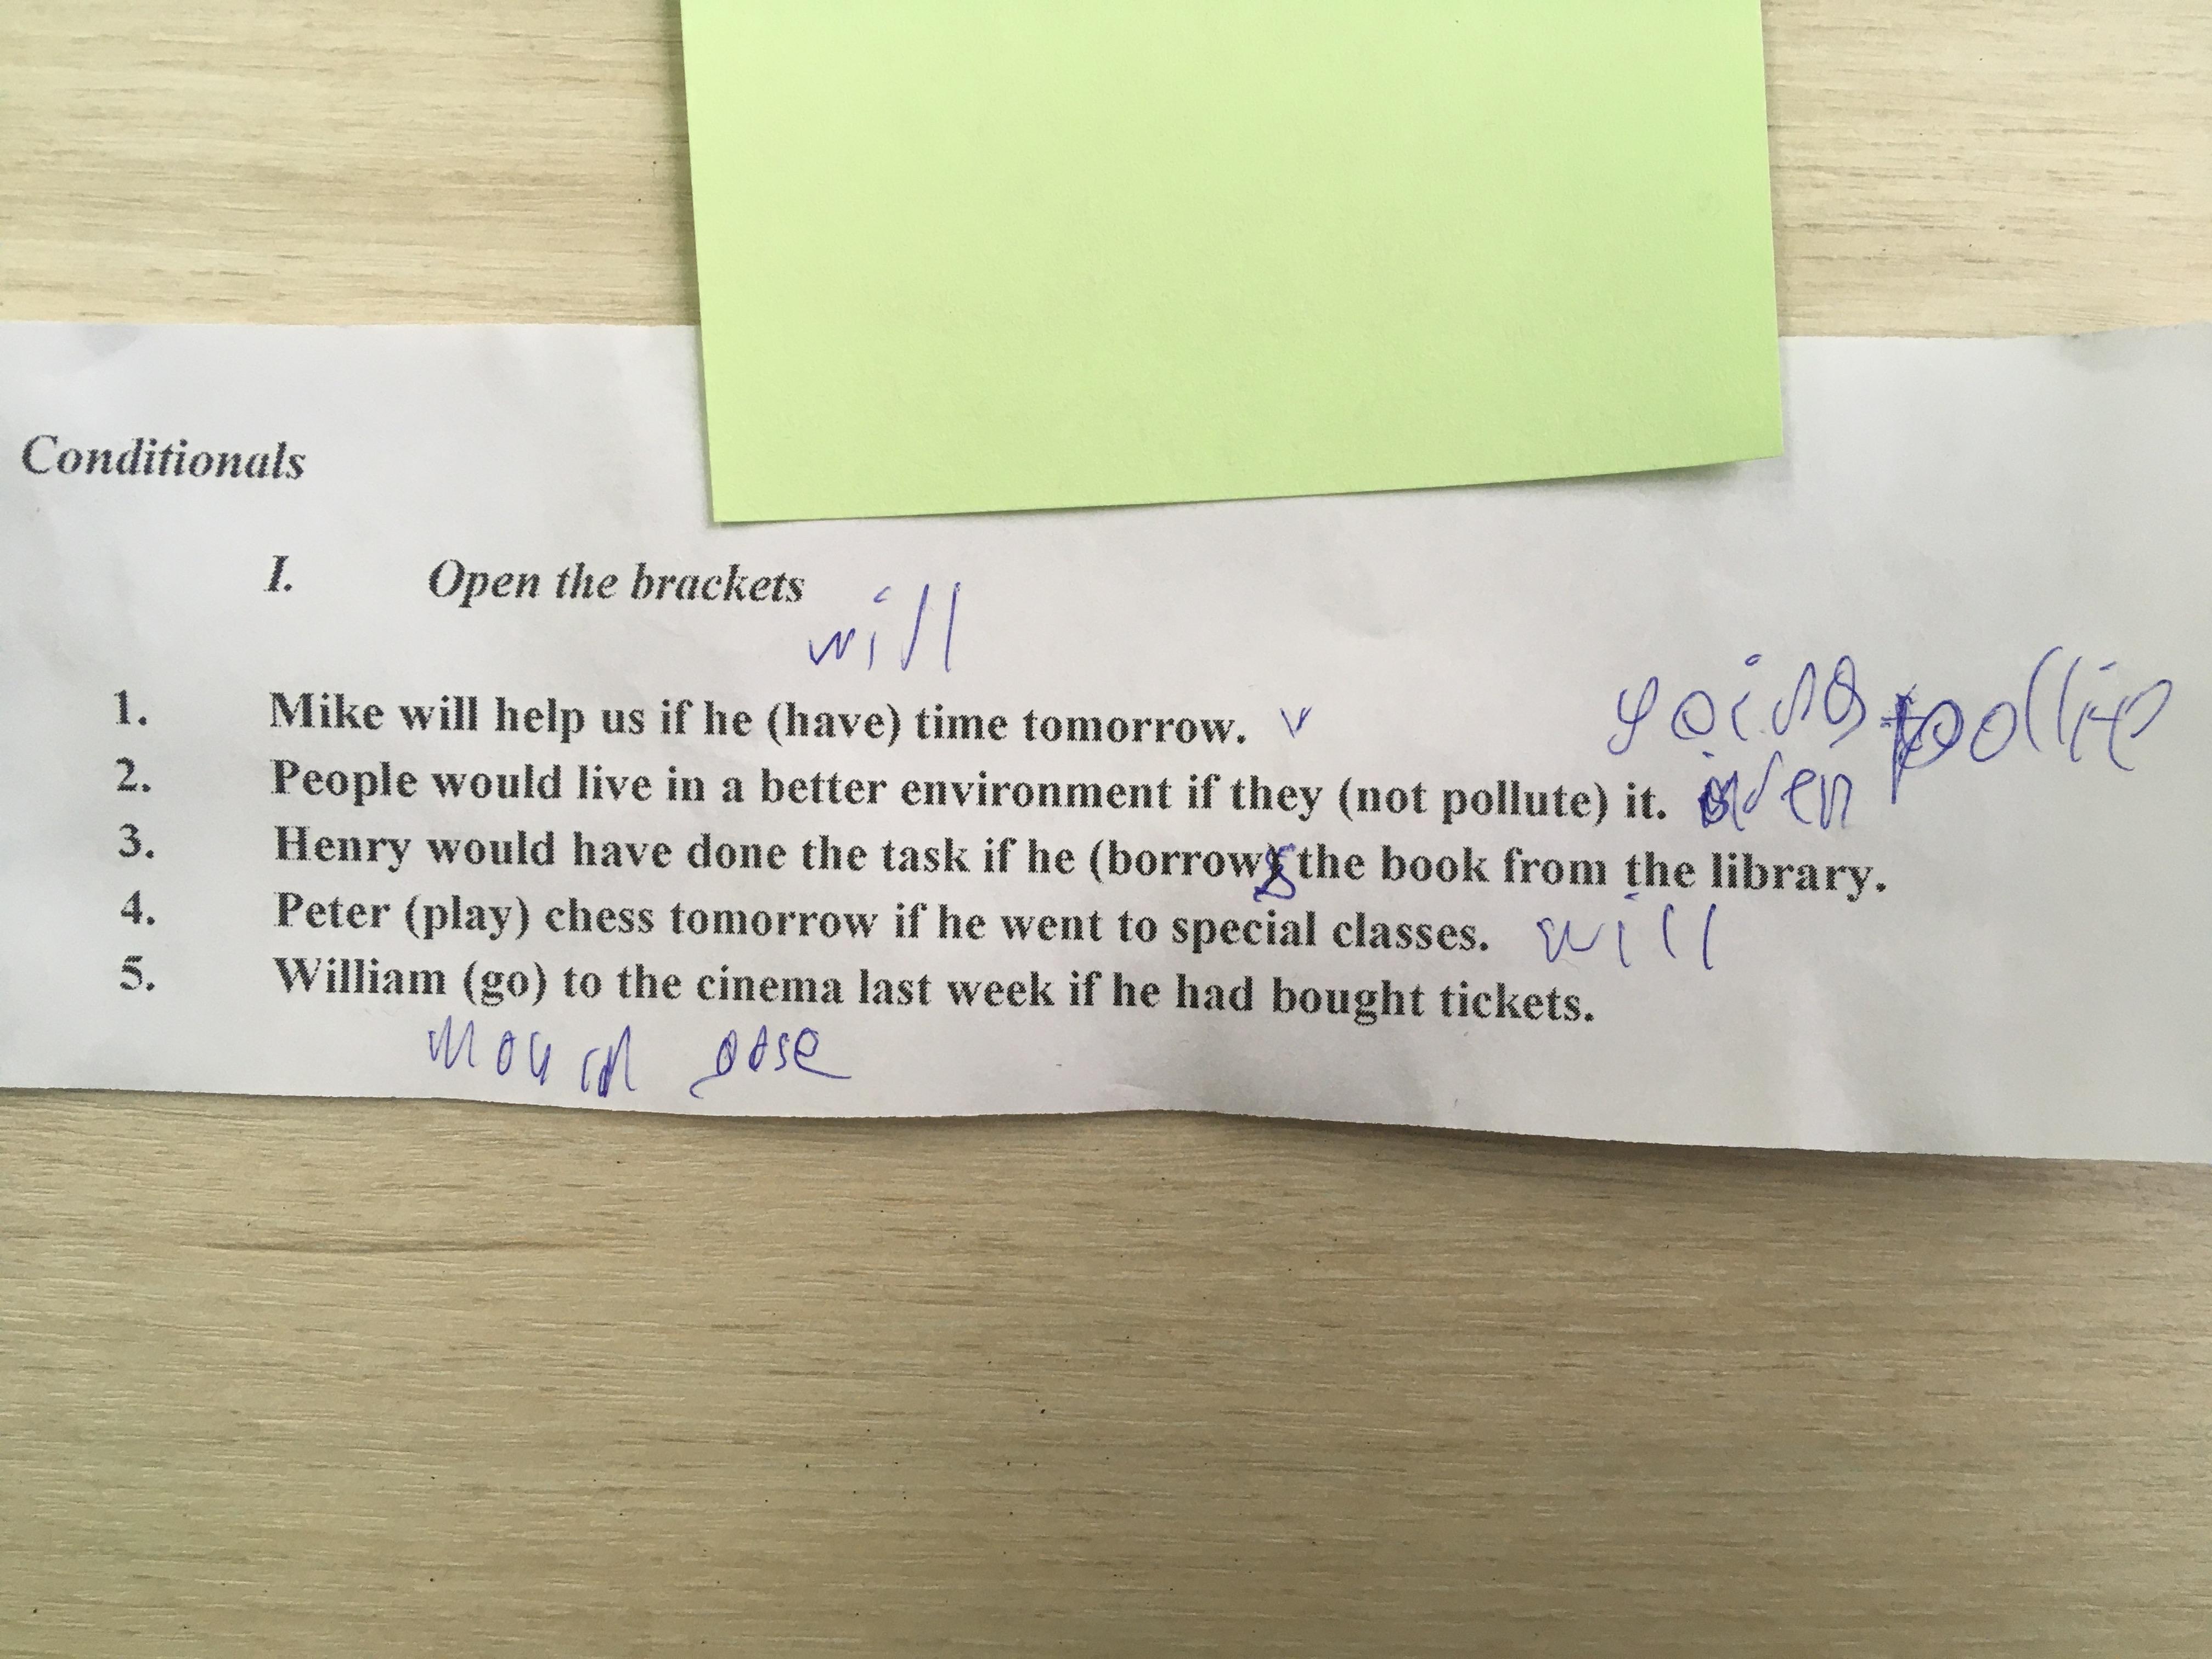 Conditionals
I. Open the brackets
will
1. Mike will help us if he (have) time tomorrow. v
2. People would live in a better environment if they (not pollute) it.
3. Henry would have done the task if he (borrow)s the book from the library.
4. Peter (play) chess tomorrow if he went to special classes. will
5. William (go) to the cinema last week if he had bought tickets.